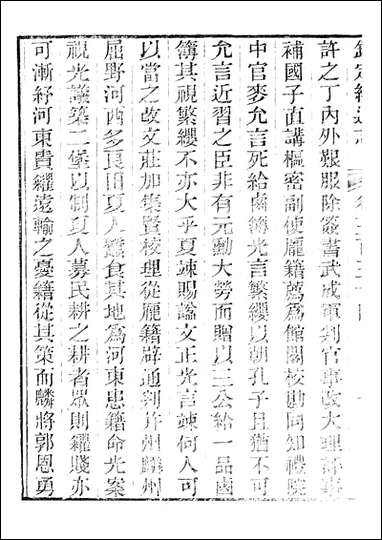 欽定續通志
許之丁內外艱服除簽書武成軍判官事改大理評事
補國子直講樞密副使龐籍薦爲館閣校勘同知禮院
中官麥允言死給鹵簿光言繁纓以朝孔子且猶不可
允言近習之臣非有元勳大勞而贈以三公給一品鹵
簿其視繁纓不亦大乎夏竦賜諡文正光言竦何人可
以當之改文莊加集賢校理從龐籍辟通判幷州麟州
屈野河西多良田夏人蠶食其地爲河東患籍命光案
視光議築二堡以制夏人募民耕之耕者眾則糴賤亦
可漸紓河東貴糴遠輸之憂籍從其策而麟將郭恩勇